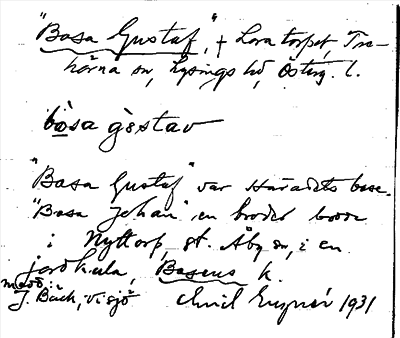 "Basa Gustaf", + Lovatorpet, Tre-
hörna sn, Lysings hd, Österg. l.
bòsa gèstav
"Basa Gustaf" var Häradets base.
"Basa Johan" en broder bodde
i Nyttorp, st. Åby sn, i en
jordkula, Basens k.
medd.
J. Bäck, Visjö Emil 1931